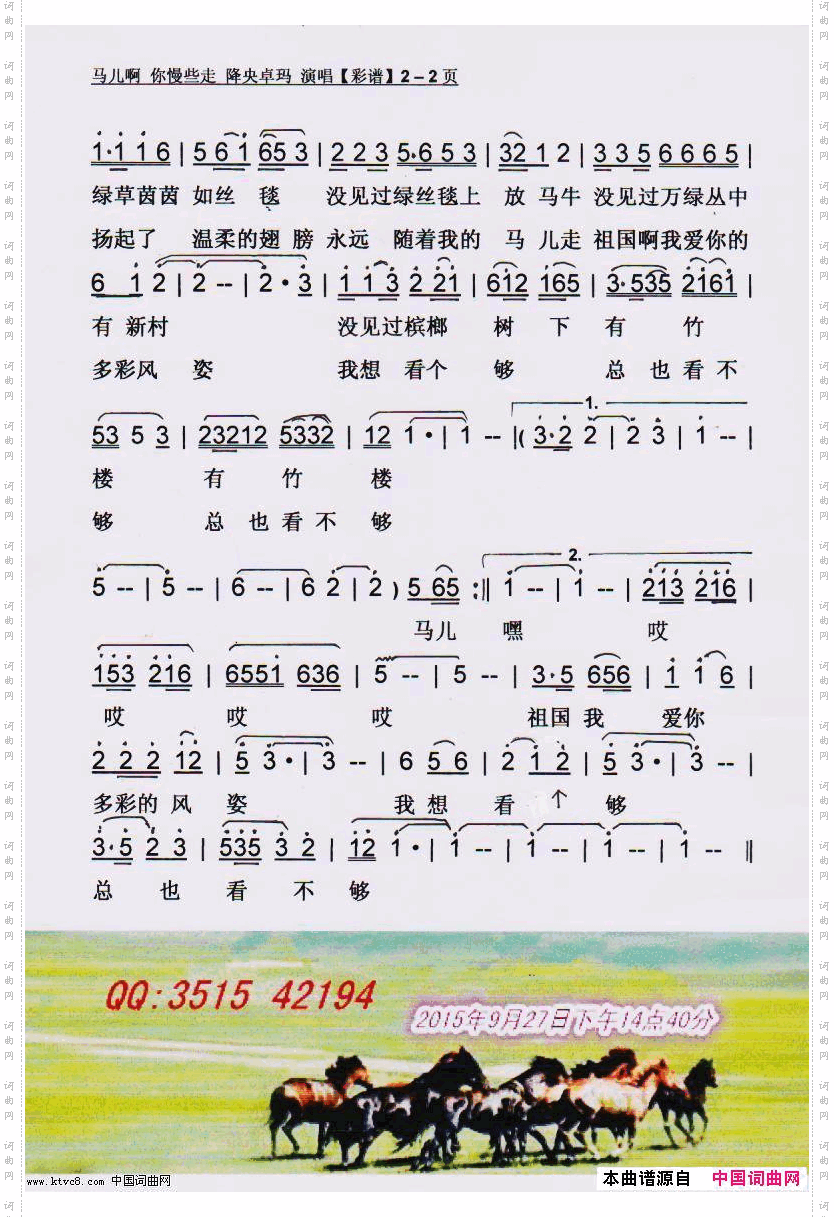 马儿啊 你慢些走 降央卓玛 演唱【彩谱】2－2页
1·1 1 6 | 5 6 1 653 | 2 2 3 5·6 5 3 | 32 1 2 | 3 3 5 6 6 6 5 |
绿草茵茵 如丝 毯 没见过绿丝毯上 放 马牛 没见过万绿丛中
扬起了 温柔的翅 膀 永远 随着我的 马 儿走 祖国啊我爱你的
6 1 2 | 2 -- | 2 · 3 | 1 1 3 2 21 | 612 165 | 3·535 2161 |
有 新村 没见过槟榔 树 下 有 竹
多彩风 姿 我想 看个 够 总 也 看 不
53 5 3 | 23212 5332 | 12 1 · | 1 -- |( 3·2 2 | 2 3 | 1 -- |
1.
楼 有 竹 楼
够 总 也 看 不 够
5 -- | 5 -- | 6 -- | 6 2 | 2 ) 5 65 :|| 1 -- | 1 -- | 213 216 |
2.
马儿 嘿 哎
153 216 | 6551 636 | 5 -- | 5 -- | 3·5 656 | 1 1 6 |
哎 哎 哎 祖国 我 爱你
2 2 2 12 | 5 3 · | 3 -- | 6 5 6 | 2 1 2 | 5 3 · | 3 -- |
多彩的 风 姿 我 想 看 个 够
3·5 2 3 | 535 3 2 | 12 1 · | 1 -- | 1 -- | 1 -- | 1 -- ||
总 也 看 不 够
QQ:3515 42194
2015年9月27日下午14点40分
www.ktvc8.com 中国词曲网
本曲谱源自 中国词曲网